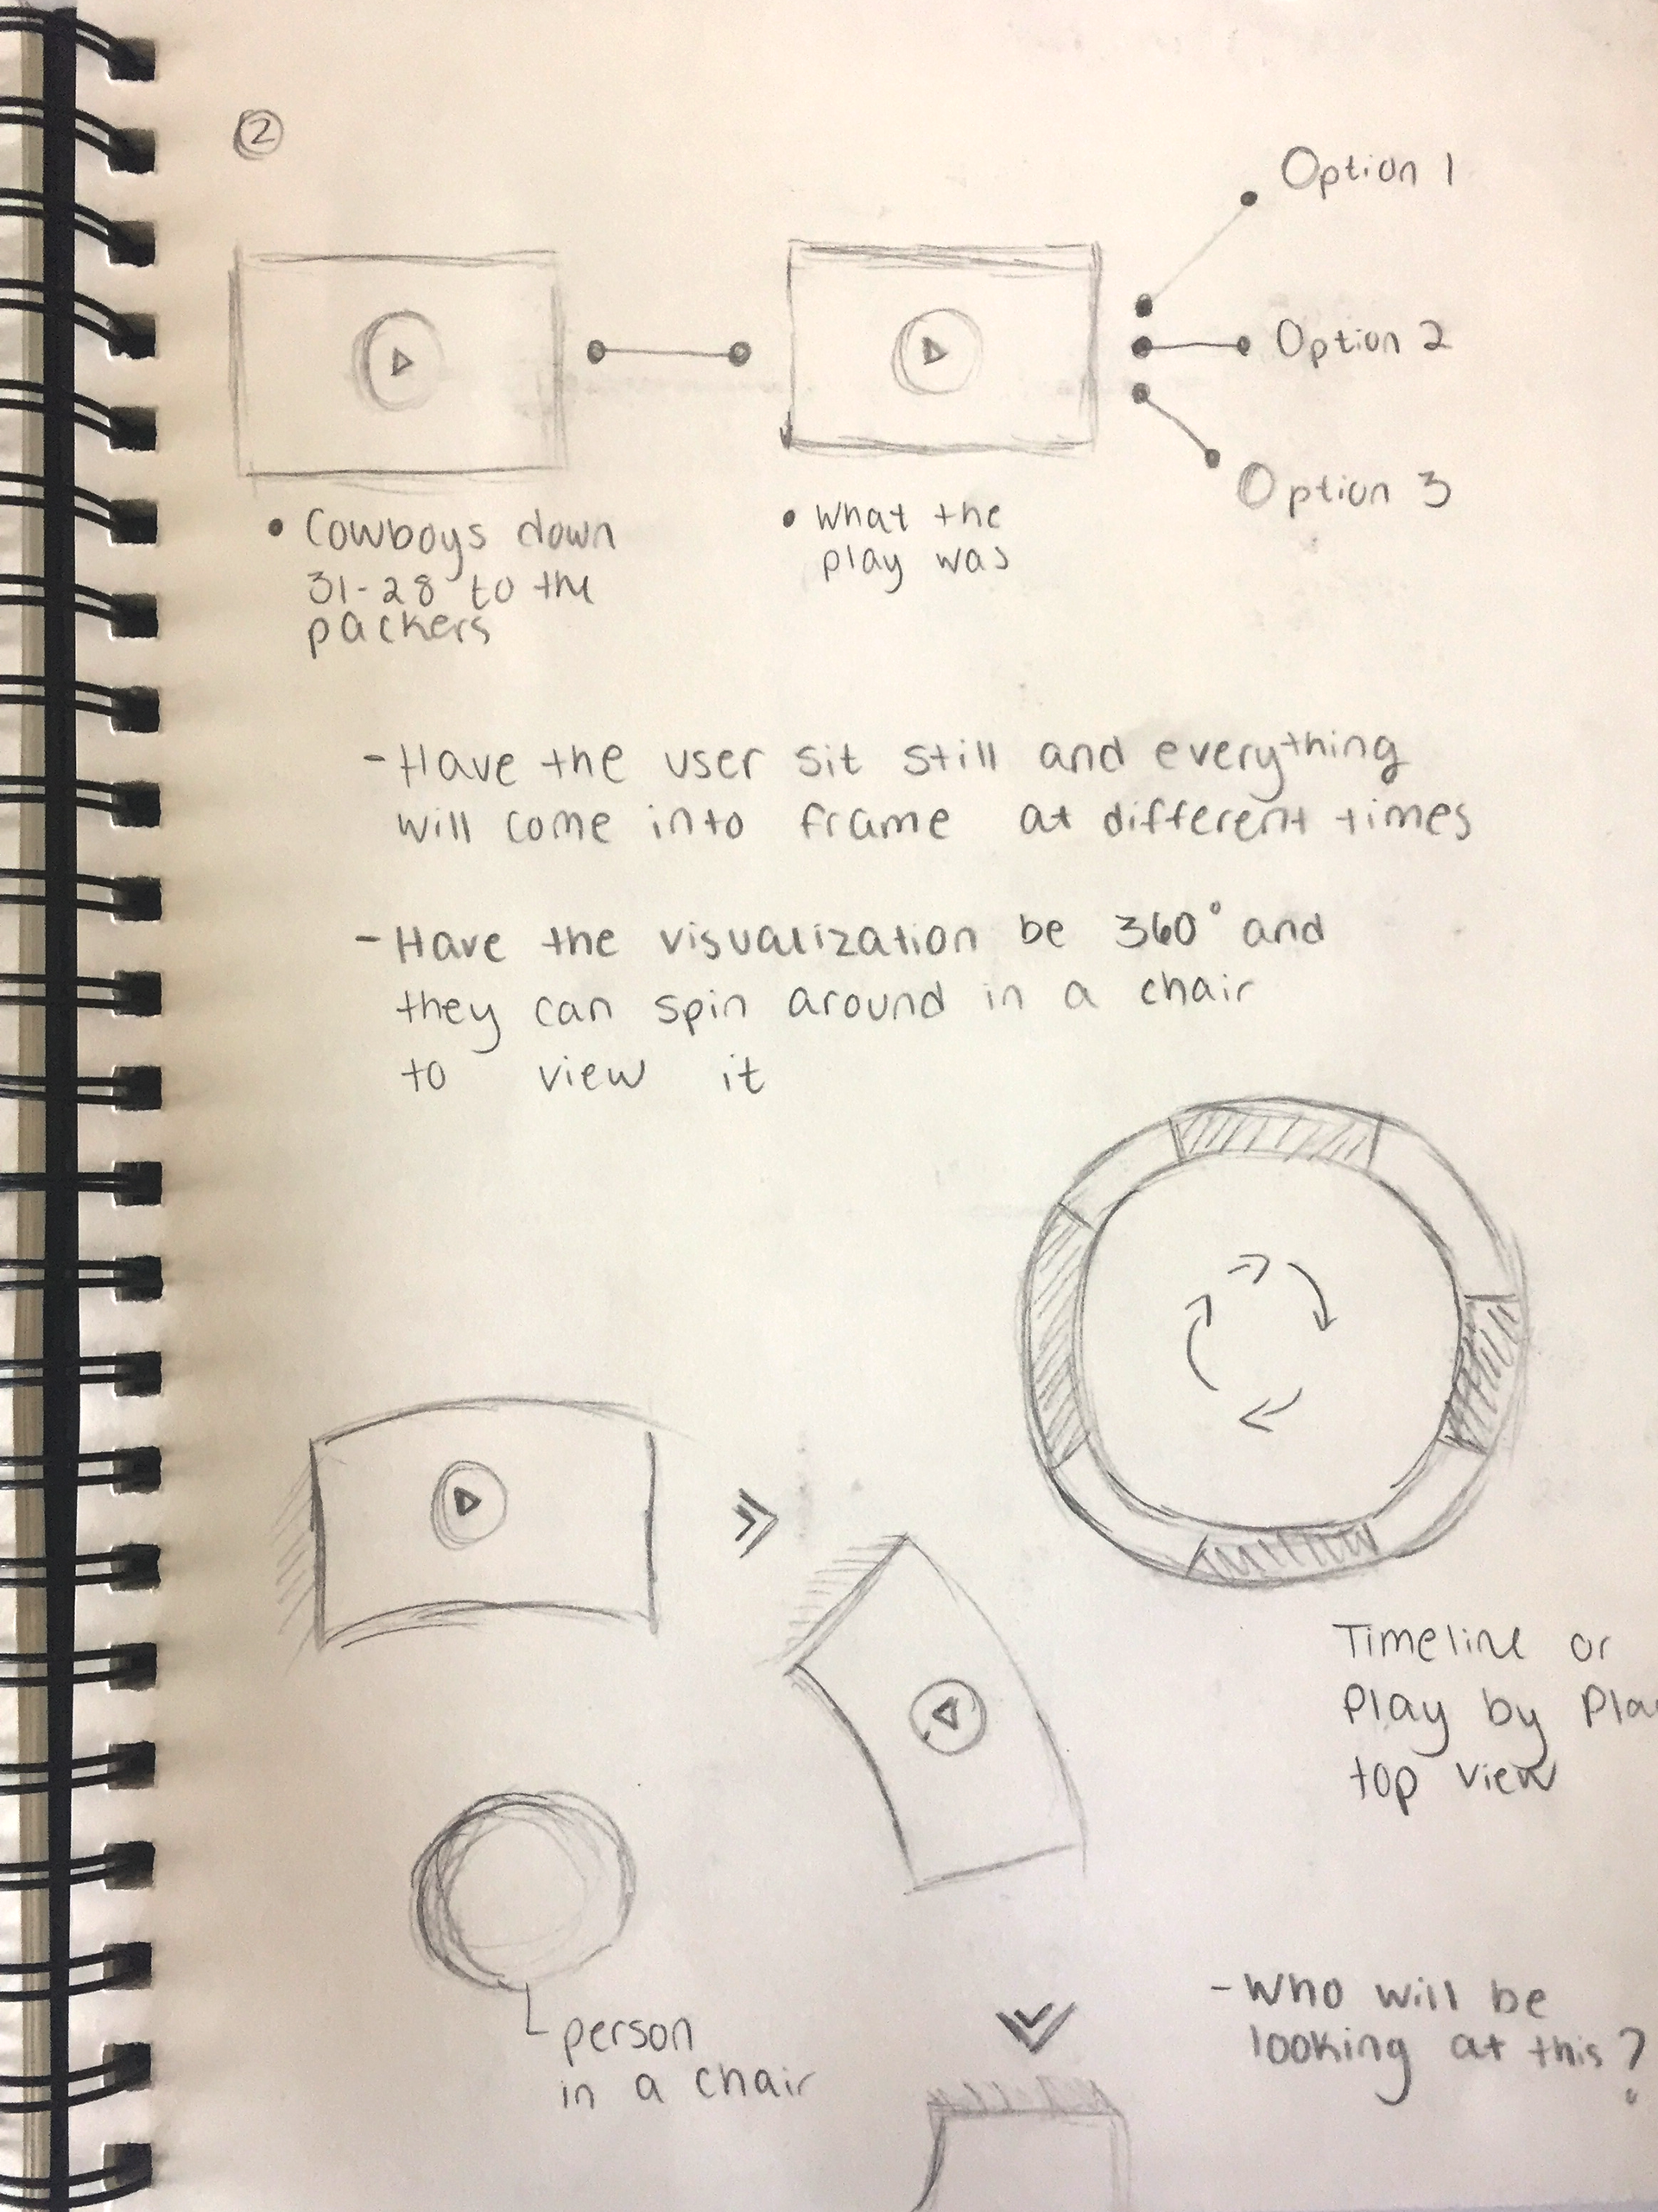 2
Option 1
Option 2
Option 3
• Cowboys down
31-28 to the
packers
• What the
play was
- Have the user sit still and everything
will come into frame at different times
- Have the visualization be 360° and
they can spin around in a chair
to view it
Timeline or
Play by Pla
top view
person
in a chair
- Who will be
looking at this?